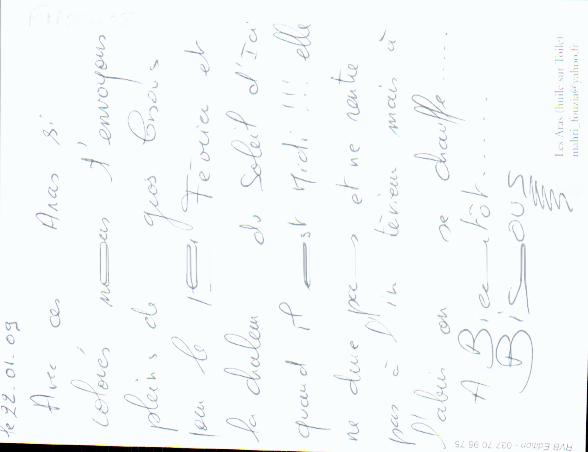 le 22.01.09
Avec ces Aras si
colorés nous t'envoyons
pleins de gros bisous
pour le 1er Février et
la chaleur du Soleil d'Ici
quand il est Midi !!! elle
ne dure pas et ne rentre
pas à l'intérieur mais à
l'abri on se chauffe .....
A Bientôt......
Bisous
Les Aras (huile sur Toile)
RVB Edition - 037 70 96 75